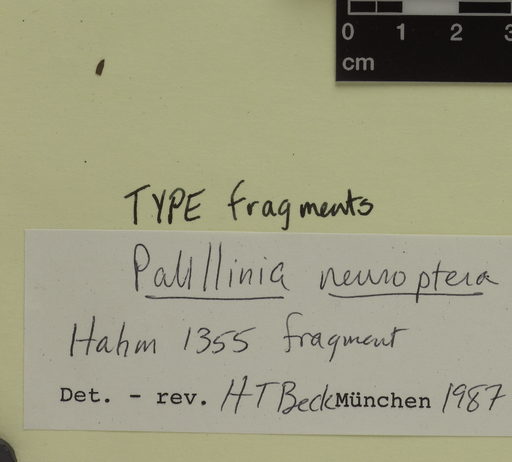 0 1 2 3
cm
TYPE fragments
Paullinia neuroptera
Hahm 1355 fragment
Det. - rev. HTBeck München 1987